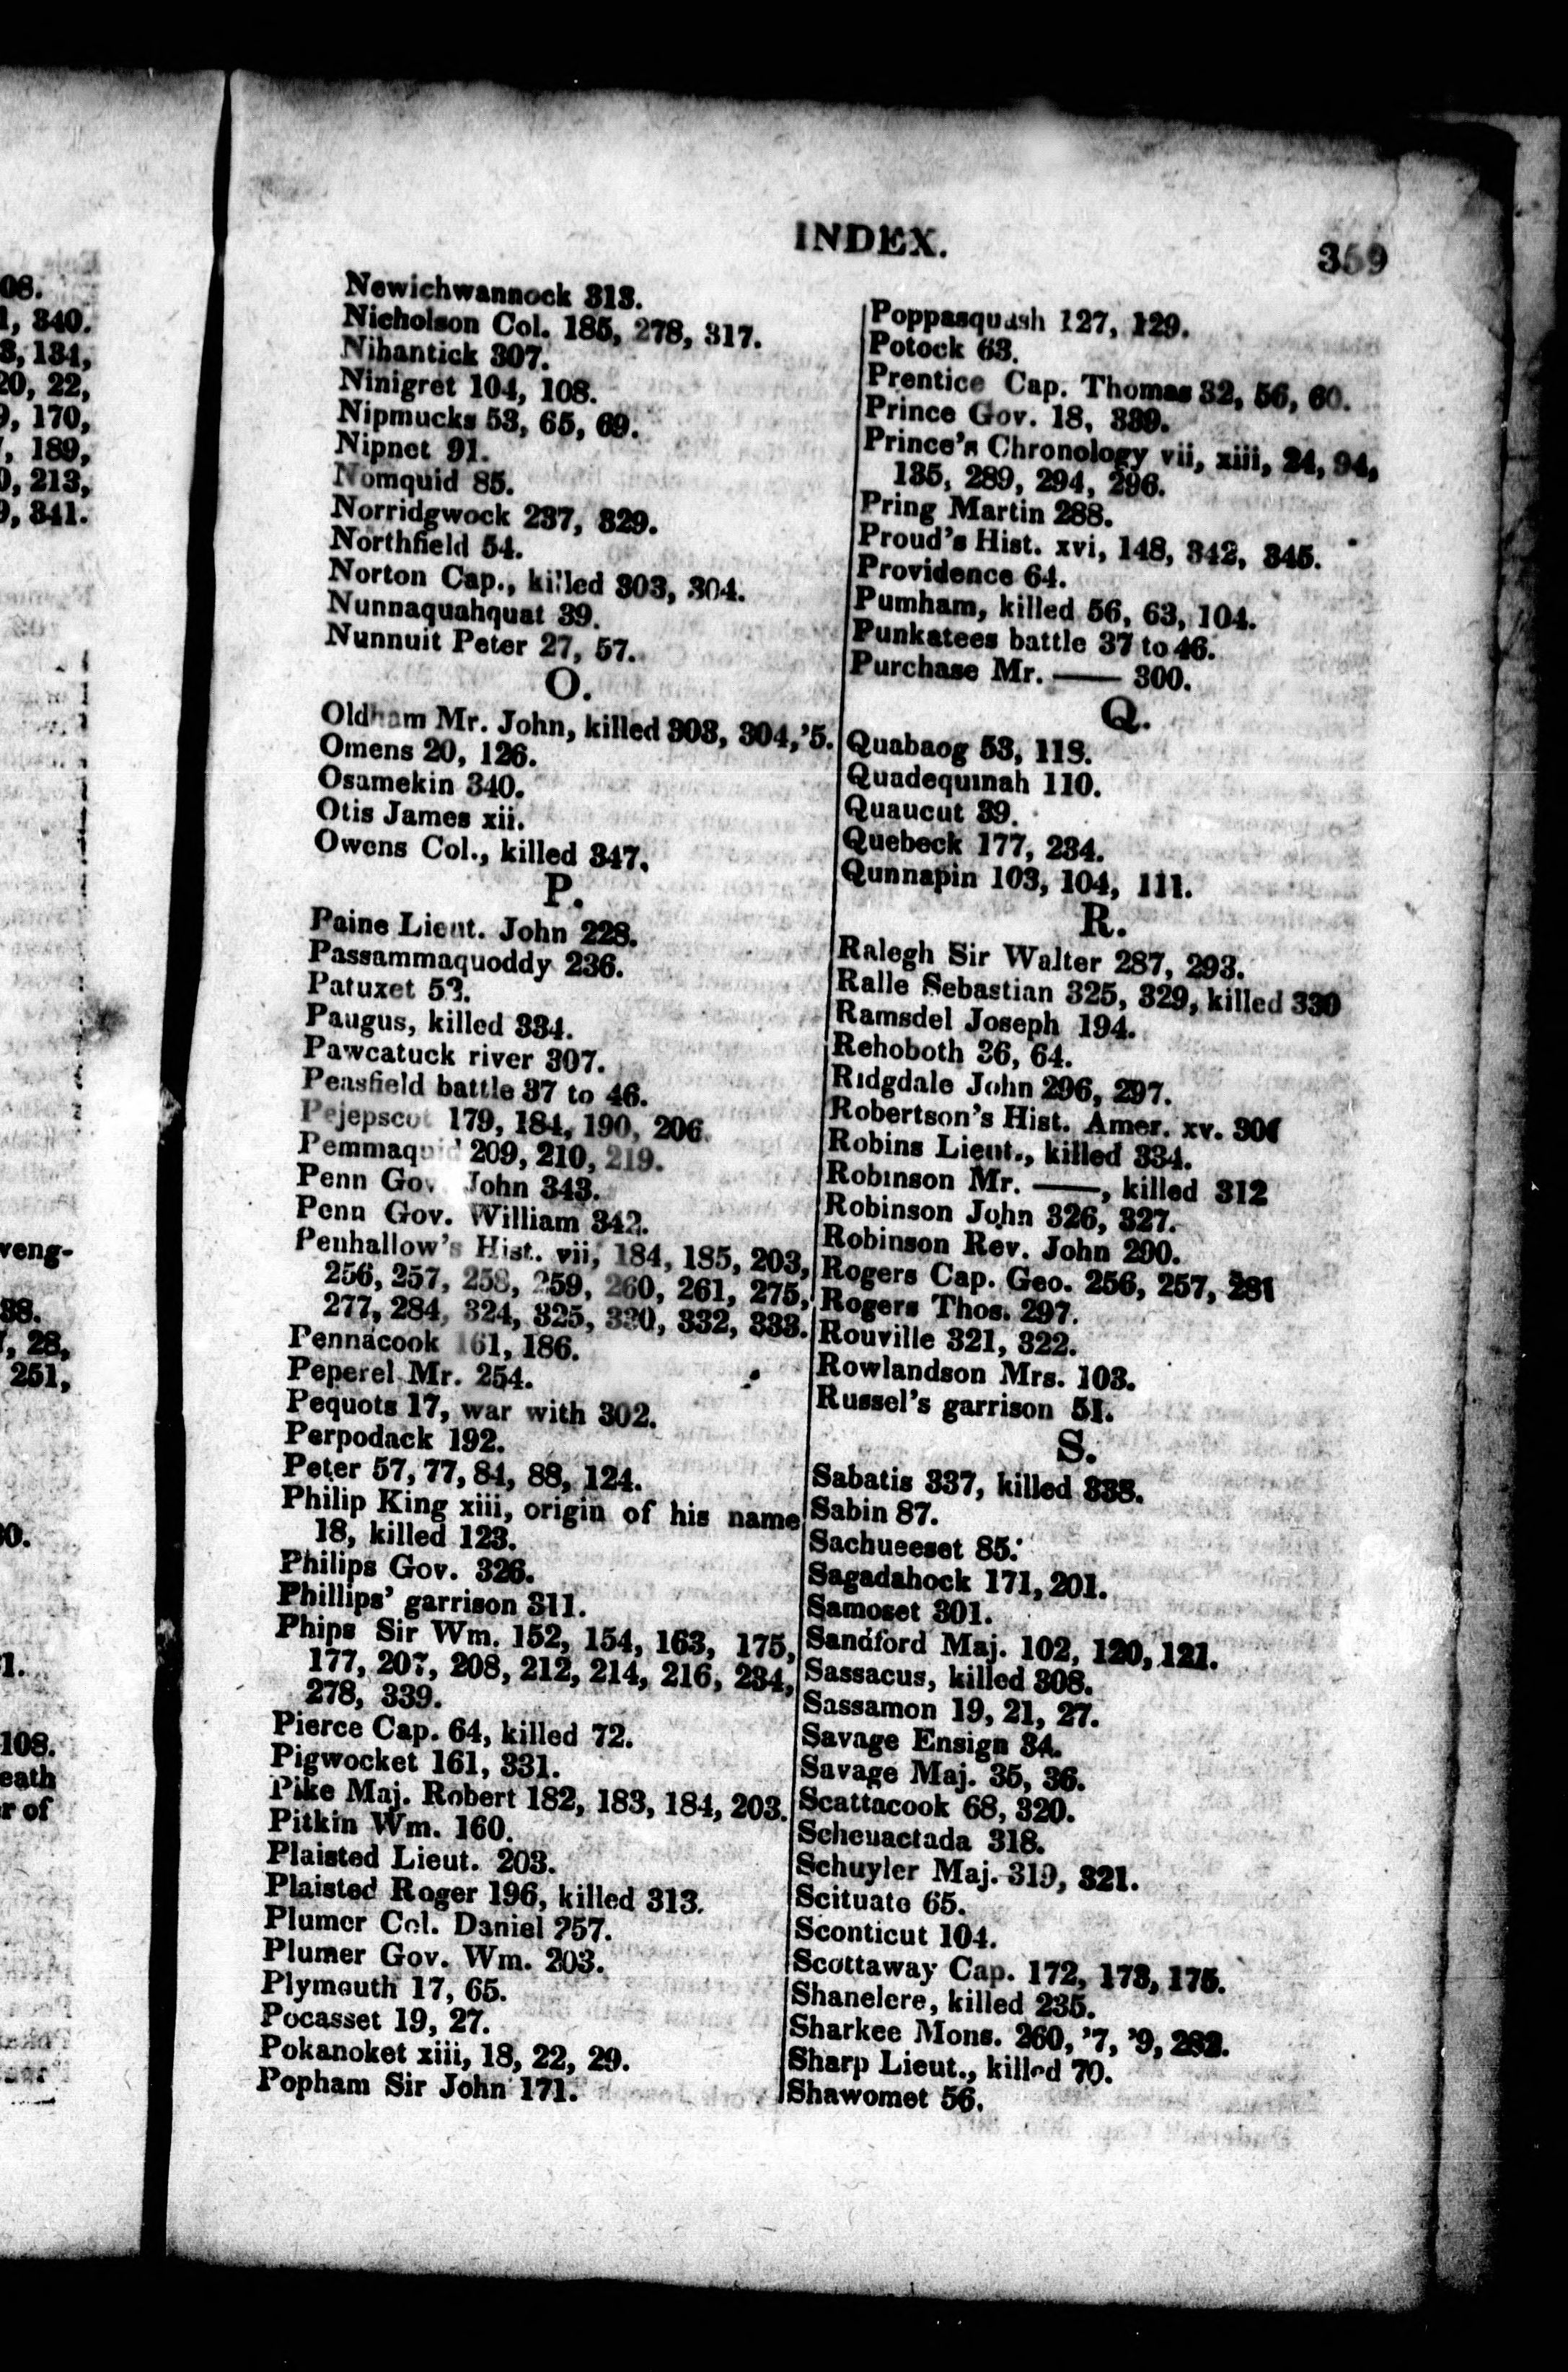 INDEX.
359
Newichwannock 313.
Nicholson Col. 185, 278, 317.
Nihantick 307.
Ninigret 104, 108.
Nipmucks 53, 65, 69.
Nipnet 91.
Nomquid 85.
Norridgwock 237, 329.
Northfield 54.
Norton Cap., killed 303, 304.
Nunnaquahquat 39.
Nunnuit Peter 27, 57.
O.
Oldham Mr. John, killed 303, 304,'5.
Omens 20, 126.
Osamekin 340.
Otis James xii.
Owens Col., killed 347.
P.
Paine Lieut. John 228.
Passammaquoddy 236.
Patuxet 53.
Paugus, killed 334.
Pawcatuck river 307.
Peasfield battle 37 to 46.
Pejepscot 179, 184, 190, 206.
Pemmaquid 209, 210, 219.
Penn Gov. John 343.
Penn Gov. William 342.
Penhallow's Hist. vii, 184, 185, 203,
256, 257, 258, 259, 260, 261, 275,
277, 284, 324, 325, 330, 332, 333.
Pennacook 161, 186.
Peperel Mr. 254.
Pequots 17, war with 302.
Perpodack 192.
Peter 57, 77, 84, 88, 124.
Philip King xiii, origin of his name
18, killed 123.
Philips Gov. 326.
Phillips' garrison 311.
Phips Sir Wm. 152, 154, 163, 175,
177, 207, 208, 212, 214, 216, 234,
278, 339.
Pierce Cap. 64, killed 72.
Pigwocket 161, 331.
Pike Maj. Robert 182, 183, 184, 203.
Pitkin Wm. 160.
Plaisted Lieut. 203.
Plaisted Roger 196, killed 313.
Plumer Col. Daniel 257.
Plumer Gov. Wm. 203.
Plymouth 17, 65.
Pocasset 19, 27.
Pokanoket xiii, 18, 22, 29.
Popham Sir John 171.
Poppasquash 127, 129.
Potock 63.
Prentice Cap. Thomas 32, 56, 60.
Prince Gov. 18, 339.
Prince's Chronology vii, xiii, 24, 94,
135, 289, 294, 296.
Pring Martin 288.
Proud's Hist. xvi, 148, 342, 345.
Providence 64.
Pumham, killed 56, 63, 104.
Punkatees battle 37 to 46.
Purchase Mr. —— 300.
Q.
Quabaog 53, 118.
Quadequinah 110.
Quaucut 39.
Quebeck 177, 234.
Qunnapin 103, 104, 111.
R.
Ralegh Sir Walter 287, 293.
Ralle Sebastian 325, 329, killed 330
Ramsdel Joseph 194.
Rehoboth 36, 64.
Ridgdale John 296, 297.
Robertson's Hist. Amer. xv.
Robins Lieut., killed 334.
Robinson Mr. ——, killed 312
Robinson John 326, 327.
Robinson Rev. John 290.
Rogers Cap. Geo. 256, 257, 281
Rogers Thos. 297.
Rouville 321, 322.
Rowlandson Mrs. 103.
Russel's garrison 51.
S.
Sabatis 337, killed 338.
Sabin 87.
Sachueeset 85.
Sagadahock 171, 201.
Samoset 301.
Sandford Maj. 102, 120, 121.
Sassacus, killed 308.
Sassamon 19, 21, 27.
Savage Ensign 34.
Savage Maj. 35, 36.
Scattacook 68, 320.
Schenactada 318.
Schuyler Maj. 319, 321.
Scituate 65.
Sconticut 104.
Scottaway Cap. 172, 173, 175.
Shanelere, killed 235.
Sharkee Mons. 260, '7, '9, 282.
Sharp Lieut., killed 70.
Shawomet 56.
08.
1, 340.
3, 134,
20, 22,
9, 170,
7, 189,
0, 213,
9, 341.
veng-
38.
7, 28,
251,
00.
1.
108.
eath
r of